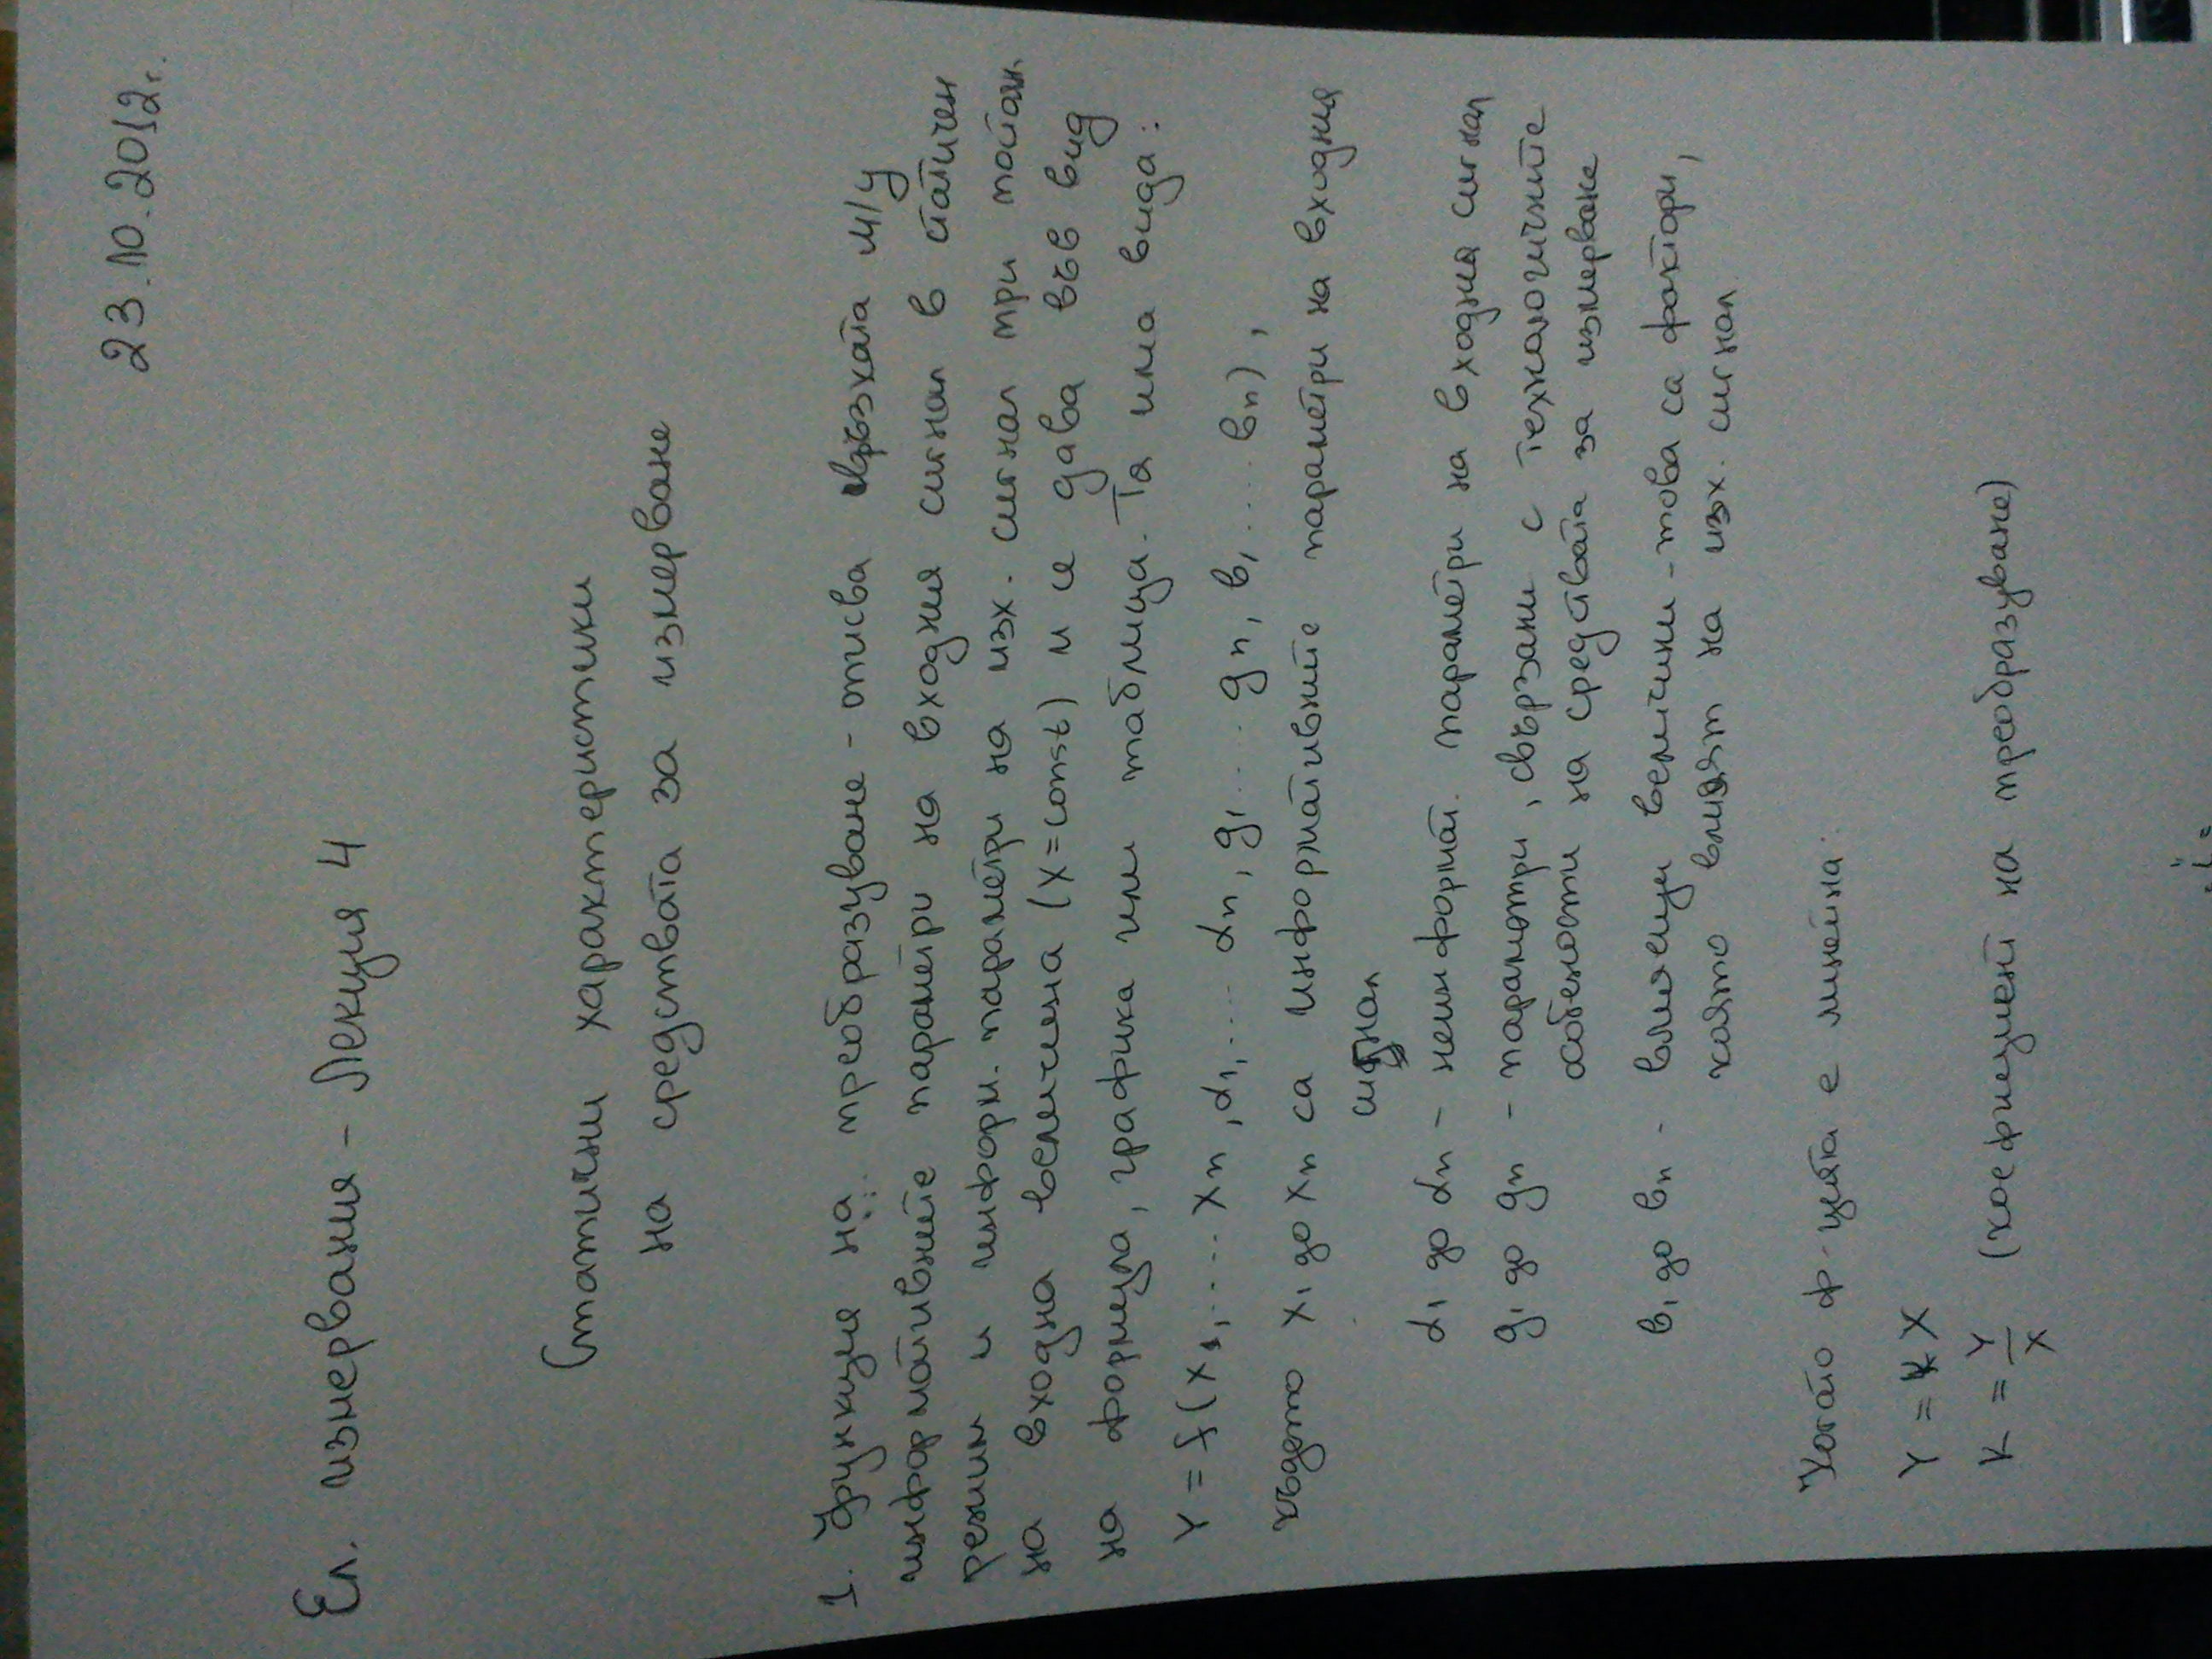 23.10.2012г.
Ел. измервания - Лекция 4
Статични характеристики
на средствата за измерване
1. Функция на преобразуване - описва връзката м/у
информативните параметри на входния сигнал в статичен
режим и информ. параметри на изх. сигнал при
на входна величина (x=const) и се дава във вид
на формула, графика или таблица. Тя има вида:
Y = f(x1,.... xn, α1,.... αn, g1.... gn, в1.... вn),
където x1 до xn са информативните параметри на входния
сигнал
α1 до αn - неинформат. параметри на входния сигнал
g1 до gn - параметри, свързани с технологичните
особености на средствата за измерване
в1 до вn - влияещи величини - това са фактори,
които влияят на изх. сигнал
Когато ф-цията е линейна:
Y = KX
K = Y/X (коефициент на преобразуване)